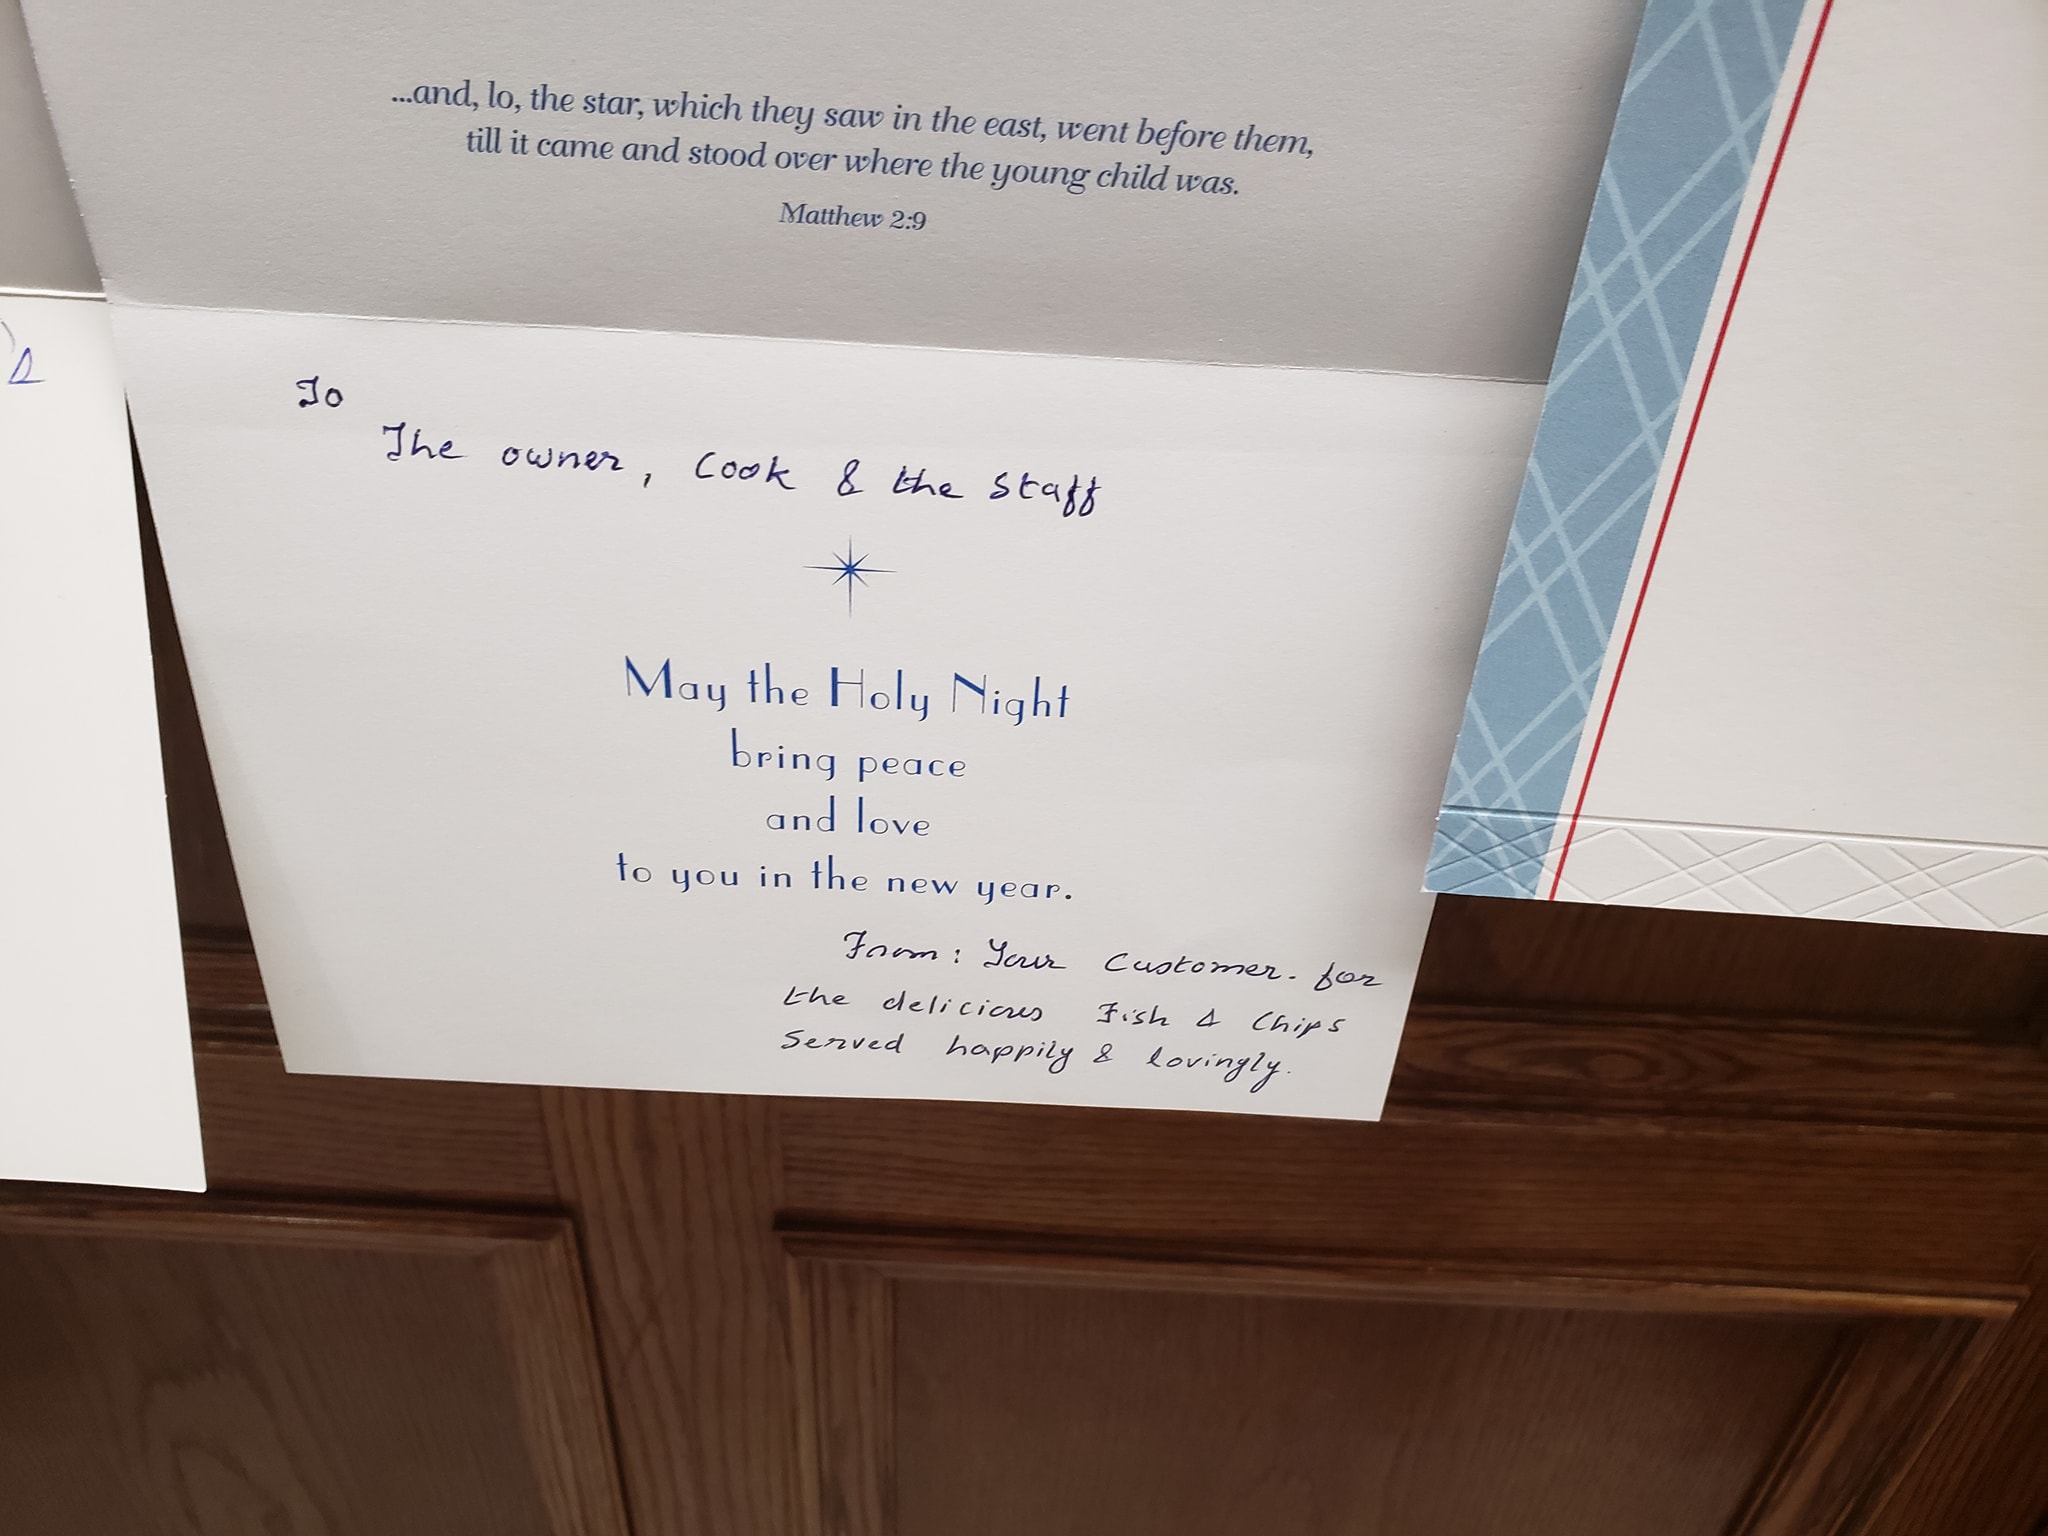 ...and, lo, the star, which they saw in the east, went before them,
till it came and stood over where the young child was.
Matthew 2:9
To
The owner, Cook & the Staff
May the Holy Night
bring peace
and love
to you in the new year.
From: Your Customer. for
the delicious Fish & Chips
Served happily & lovingly.